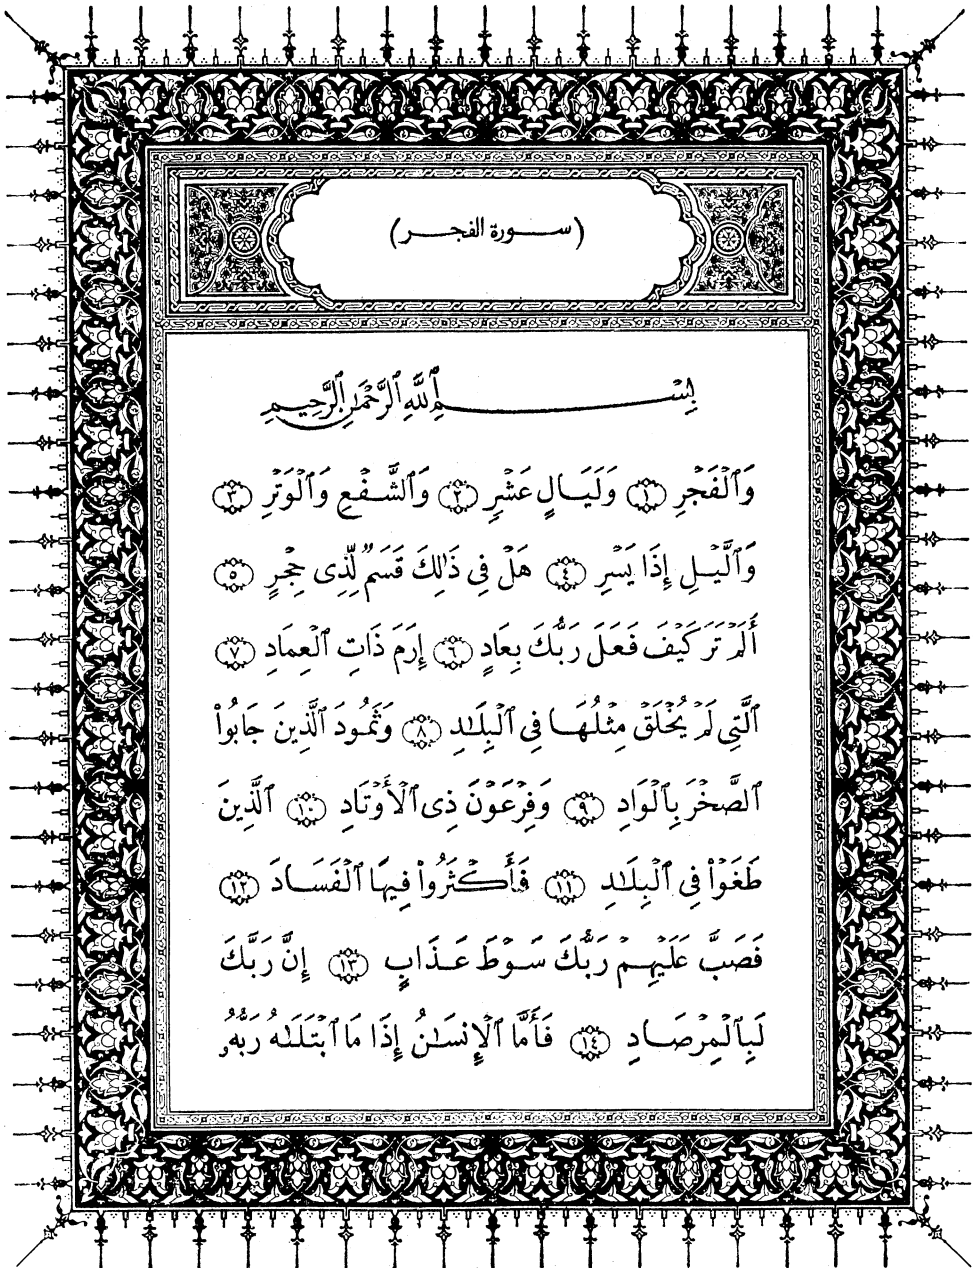 (سورة الفجر)
بِسْمِ ٱللَّهِ ٱلرَّحْمَٰنِ ٱلرَّحِيمِ
وَٱلْفَجْرِ ١ وَلَيَالٍ عَشْرٍ ٢ وَٱلشَّفْعِ وَٱلْوَتْرِ ٣
وَٱلَّيْلِ إِذَا يَسْرِ ٤ هَلْ فِى ذَٰلِكَ قَسَمٌ لِّذِى حِجْرٍ ٥
أَلَمْ تَرَ كَيْفَ فَعَلَ رَبُّكَ بِعَادٍ ٦ إِرَمَ ذَاتِ ٱلْعِمَادِ ٧
ٱلَّتِى لَمْ يُخْلَقْ مِثْلُهَا فِى ٱلْبِلَٰدِ ٨ وَثَمُودَ ٱلَّذِينَ جَابُوا۟
ٱلصَّخْرَ بِٱلْوَادِ ٩ وَفِرْعَوْنَ ذِى ٱلْأَوْتَادِ ١٠ ٱلَّذِينَ
طَغَوْا۟ فِى ٱلْبِلَٰدِ ١١ فَأَكْثَرُوا۟ فِيهَا ٱلْفَسَادَ ١٢
فَصَبَّ عَلَيْهِمْ رَبُّكَ سَوْطَ عَذَابٍ ١٣ إِنَّ رَبَّكَ
لَبِٱلْمِرْصَادِ ١٤ فَأَمَّا ٱلْإِنسَٰنُ إِذَا مَا ٱبْتَلَىٰهُ رَبُّهُۥ